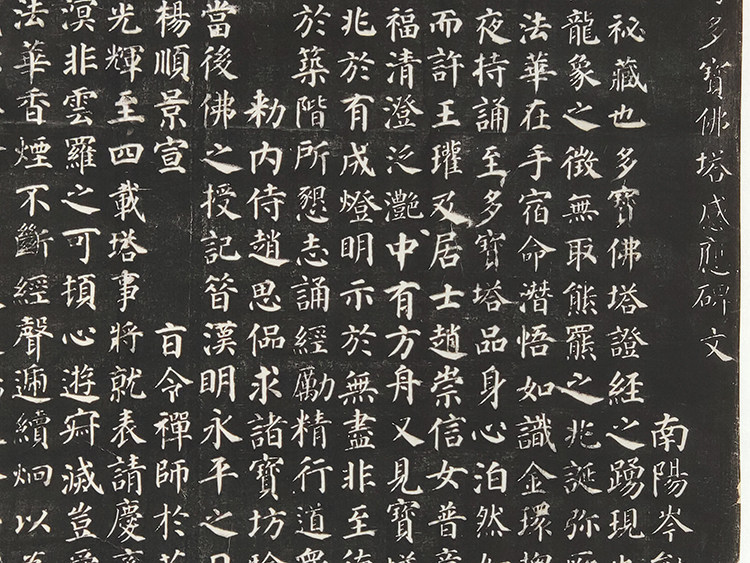 多寶佛塔感應碑文
南陽岑
秘藏也多寶佛塔證經之踴現
龍象之徵無取熊羆之兆誕弥
法華在手宿命潛悟如識金環
夜持誦至多寶塔品身心泊然如
而許王瓘及居士趙崇信女普意
福清澄泛灔中有方舟又見寶塔
兆於有成燈明示於無盡非至
於築階所懇志誦經勵精行道眾
勑內侍趙思偘求諸寶坊驗
當後佛之授記昝漢明永平之日
楊順景宣 旨令禪師於
光輝至四載塔事將就表請慶
溟非雲羅之可頓心遊寂滅豈
法華香煙不斷經聲遞續炯以為